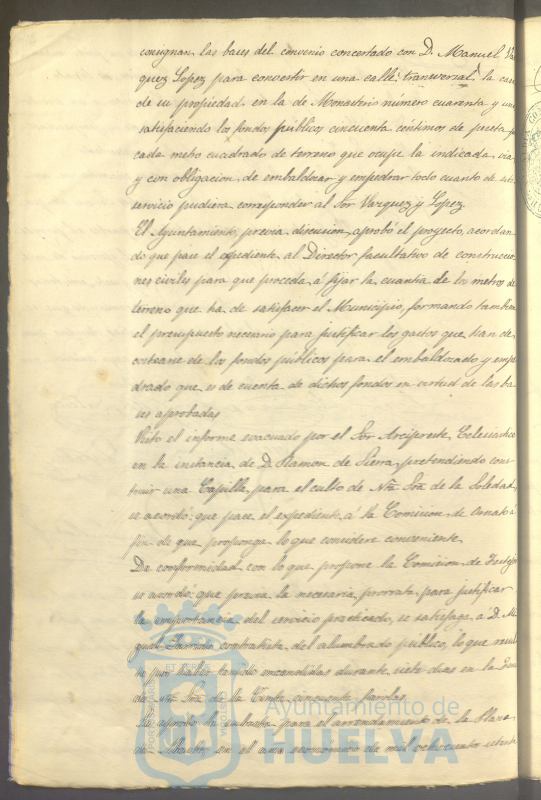 consignan las bases del convenio concertado con D. Manuel Vaz
quez Lopez para convertir en una calle transversal la casa
de su propiedad en la de Monasterio número cuarenta y uno
satisfaciendo los fondos públicos cincuenta céntimos de peseta p
cada metro cuadrado de terreno que ocupe la indicada via,
y con obligacion de embaldosar y empedrar todo cuanto de este
servicio pudiera corresponder al Sor Vazquez y Lopez
El Ayuntamiento, previa discusion, aprobó el proyecto, acordan
do que pase el expediente al Director facultativo de construccio
nes civiles para que proceda á fijar la cuantía de los metros de
terreno que ha de satisfacer el Municipio, formando tambien
el presupuesto necesario para justificar los gastos que han de
costearse de los fondos públicos para el embaldosado y empe
drado que es de cuenta de dichos fondos en virtud de las ba
ses aprobadas
Visto el informe evacuado por el Sor Arcipreste Eclesiastico
en la instancia de D. Ramon de Sierra, pretendiendo cons-
truir una Capilla para el culto de Ntra Sra de la Soledad,
se acordó: que pase el expediente á la Comision de Ornato á
fin de que proponga lo que considere conveniente
De conformidad con lo que propone la Comision de Festejos
se acordó: que previa la necesaria prorrata, para justificar
la importancia del servicio practicado, se satisfaga á D. Mi
guel Garrido contratista del alumbrado público, lo que resul
te por haber tenido encendidas durante siete dias en la
de Ntra Sra de la Cinta cincuenta farolas
Se aprobó la subasta para el arrendamiento de la Plaza
de Abastos, en el año económico de mil ochocientos ochenta
Ayuntamiento de
HUELVA